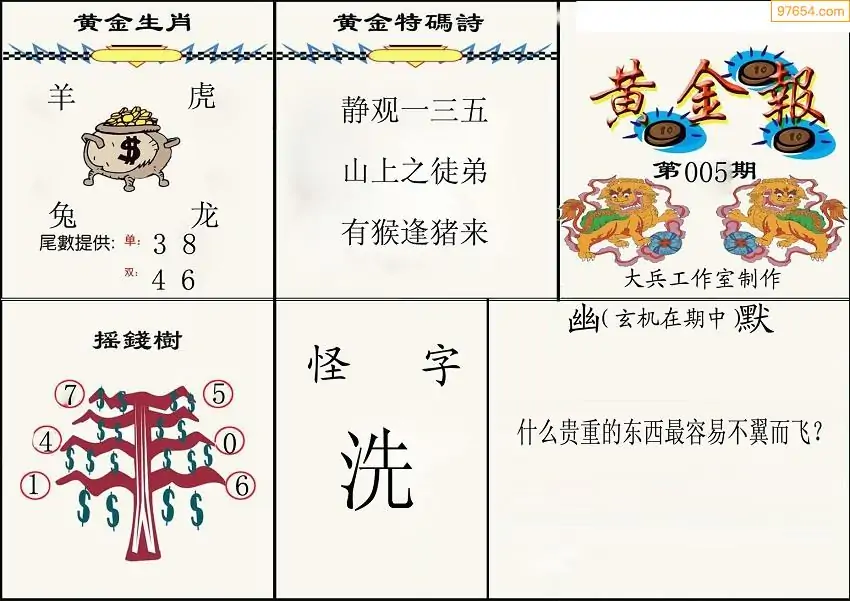 97654.com
黄金生肖
羊 虎
$
兔 龙
尾數提供: 单: 3 8
双: 4 6
黄金特碼詩
静观一三五
山上之徒弟
有猴逢猪来
黄金報
10
10
10
第005期
大兵工作室制作
摇錢樹
7 5
4 0
1 6
$ $ $ $
$ $ $ $
$ $ $ $
$ $ $ $
怪 字
洗
幽(玄机在期中)默
什么贵重的东西最容易不翼而飞?